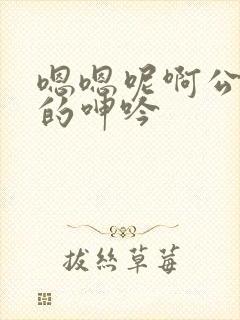 嗯嗯呢啊公
的呻吟
拔丝草莓